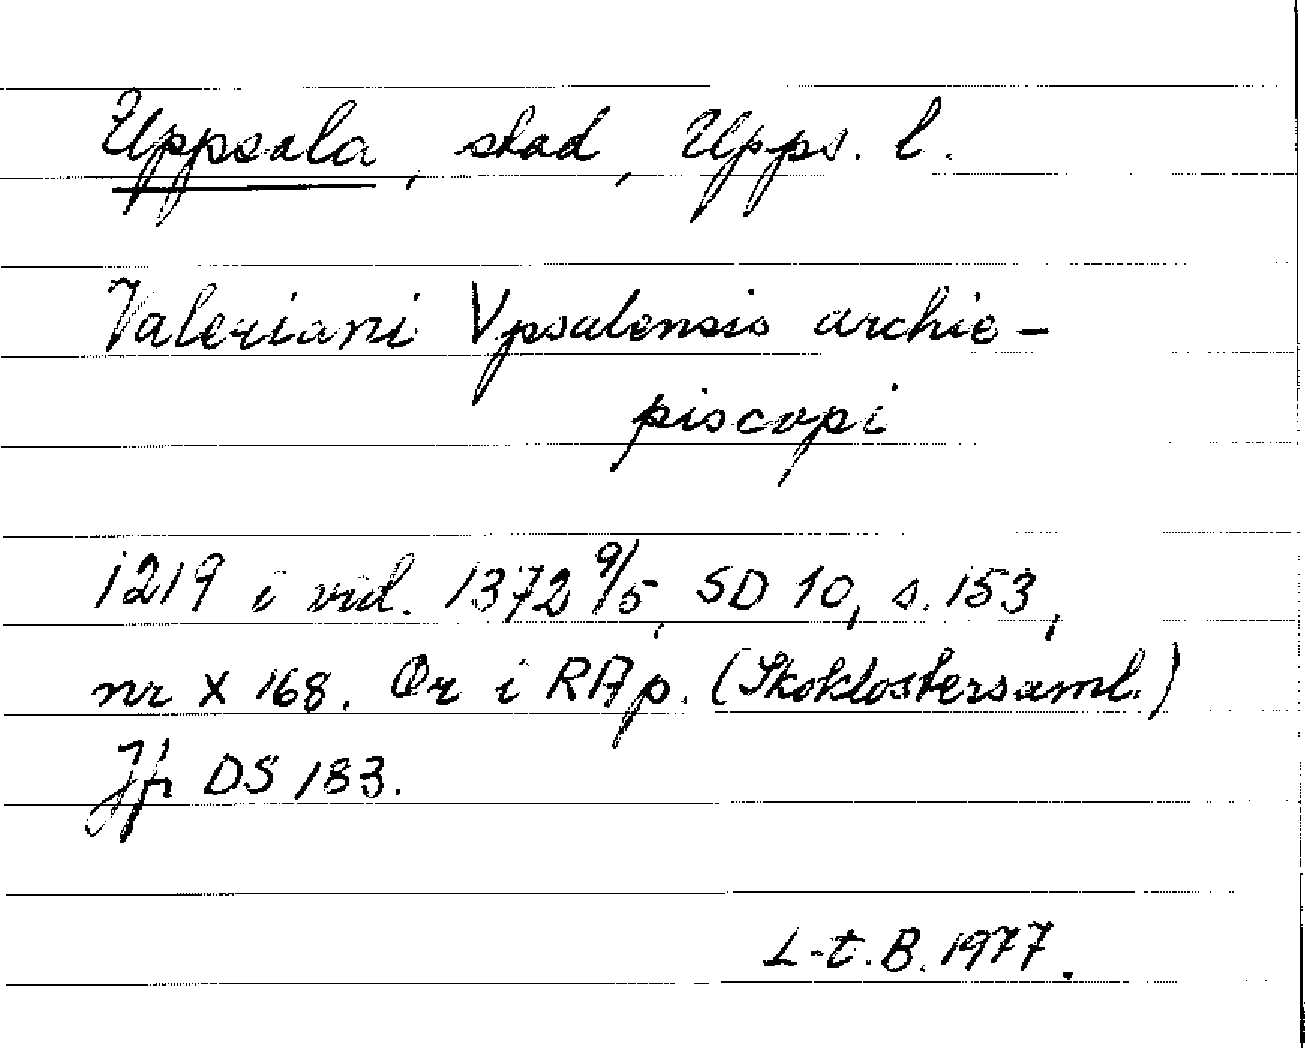 Uppsala, stad, Upps. l.
Valeriani Vpsalensis archie-
piscopi
1219 i vid. 1372 9/5, SD 10, s. 153,
nr X 168. Or i RAp. (Skoklostersaml.)
Jfr DS 183.
L-t. B. 1977.